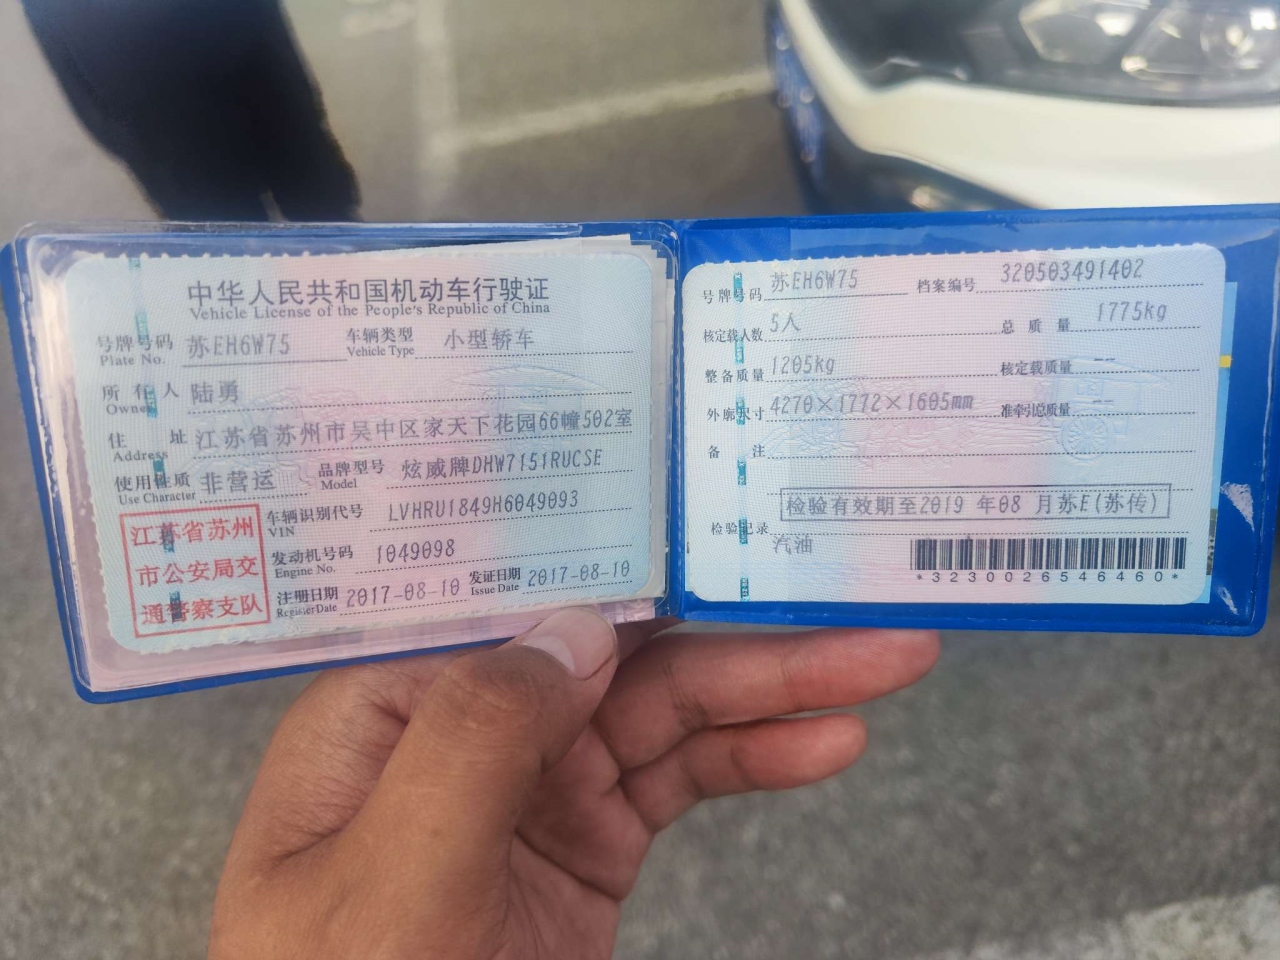 中华人民共和国机动车行驶证
Vehicle License of the People's Republic of China
号牌号码 苏EH6W75 车辆类型 小型轿车
Plate No. Vehicle Type
所有人 陆勇
Owner
住址 江苏省苏州市吴中区家天下花园66幢502室
Address
使用性质 非营运 品牌型号 炫威牌DHW7151RUCSE
Use Character Model
江苏省苏州
市公安局交
通警察支队
车辆识别代号 LVHRU1849H6049093
VIN
发动机号码 1049098
Engine No.
注册日期 2017-08-10 发证日期 2017-08-10
Register Date Issue Date
号牌号码 苏EH6W75 档案编号 320503491402
核定载人数 5人 总质量 1775kg
整备质量 1205kg 核定载质量 --
外廓尺寸 4270×1772×1605mm 准牵引总质量 --
备注
检验有效期至2019 年08 月苏E(苏传)
检验记录
汽油
*3230026546460*